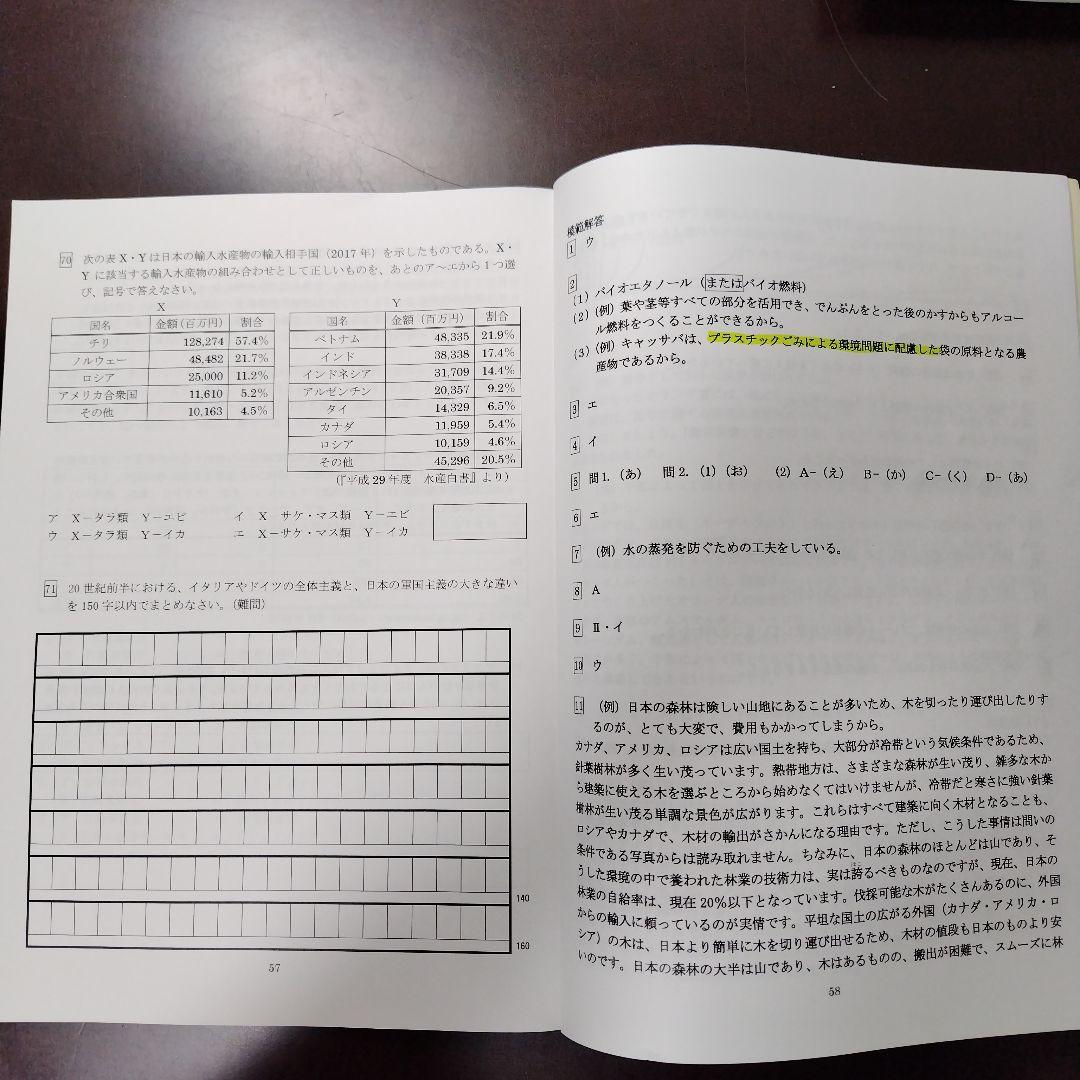 70 次の表X・Yは日本の輸入水産物の輸入相手国(2017年)を示したものである。X・
Yに該当する輸入水産物の組み合わせとして正しいものを、あとのア～エから1つ選
び、記号で答えなさい。
X
国名 金額(百万円) 割合
チリ 128,274 57.4%
ノルウェー 48,482 21.7%
ロシア 25,000 11.2%
アメリカ合衆国 11,610 5.2%
その他 10,163 4.5%
Y
国名 金額(百万円) 割合
ベトナム 48,335 21.9%
インド 38,338 17.4%
インドネシア 31,709 14.4%
アルゼンチン 20,357 9.2%
タイ 14,329 6.5%
カナダ 11,959 5.4%
ロシア 10,159 4.6%
その他 45,296 20.5%
(『平成29年度 水産白書』より)
ア X－タラ類 Y－エビ イ X－サケ・マス類 Y－エビ
ウ X－タラ類 Y－イカ エ X－サケ・マス類 Y－イカ
71 20世紀前半における、イタリアやドイツの全体主義と、日本の軍国主義の大きな違い
を150字以内でまとめなさい。(難問)
140
160
57
模範解答
1 ウ
2
(1) バイオエタノール (またはバイオ燃料)
(2) (例) 葉や茎等すべての部分を活用でき、でんぷんをとった後のかすからもアルコー
ル燃料をつくることができるから。
(3) (例) キャッサバは、プラスチックごみによる環境問題に配慮した袋の原料となる農
産物であるから。
3 エ
4 イ
5 問1.(あ) 問2.(1)(お) (2) A－(え) B－(か) C－(く) D－(あ)
6 エ
7 (例) 水の蒸発を防ぐための工夫をしている。
8 A
9 Ⅱ・イ
10 ウ
11 (例) 日本の森林は険しい山地にあることが多いため、木を切ったり運び出したりす
るのが、とても大変で、費用もかかってしまうから。
カナダ、アメリカ、ロシアは広い国土を持ち、大部分が冷帯という気候条件であるため、
針葉樹林が多く生い茂っています。熱帯地方は、さまざまな森林が生い茂り、雑多な木か
ら建築に使える木を選ぶところから始めなくてはいけませんが、冷帯だと寒さに強い針葉
樹林が生い茂る単調な景色が広がります。これらはすべて建築に向く木材となることも、
ロシアやカナダで、木材の輸出がさかんになる理由です。ただし、こうした事情は問いの
条件である写真からは読み取れません。ちなみに、日本の森林のほとんどは山であり、そ
うした環境の中で養われた林業の技術力は、実は誇るべきものなのですが、現在、日本の
林業の自給率は、現在20%以下となっています。伐採可能な木がたくさんあるのに、外国
からの輸入に頼っているのが実情です。平坦な国土の広がる外国(カナダ・アメリカ・ロ
シア)の木は、日本より簡単に木を切り運び出せるため、木材の値段も日本のものより安
いのです。日本の森林の大半は山であり、木はあるものの、搬出が困難で、スムーズに林
58